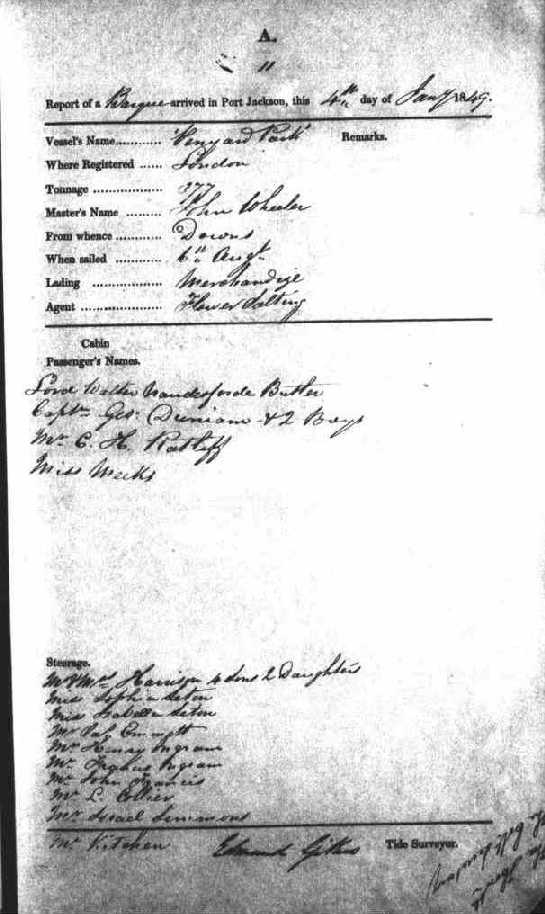 A.
11
Report of a Barque arrived in Port Jackson, this 4th day of Jany 1849.
Vessel's Name........... 'Penyard Park' Remarks.
Where Registered ...... London
Tonnage .................. 277
Master's Name ......... John Wheeler
From whence ............ Downs
When sailed ............ 6th Augt.
Lading .................. Merchandize
Agent ..................... Flower Salting
Cabin
Passenger's Names.
Lord Walter Butler
Captn Geo. & 2 Boys
Mr C. H. Ratliff
Miss Weeks
Steerage.
Mr & Mrs Harrison Sons 2 Daughters
Miss Sophia Seton
Miss Isabella Seton
Mr
Mr Henry Ingram
Mr Ingram
Mr John Francis
Mr L. Collier
Mr Israel Simmons
Mr Kitchen Edmund Gilks Tide Surveyor.